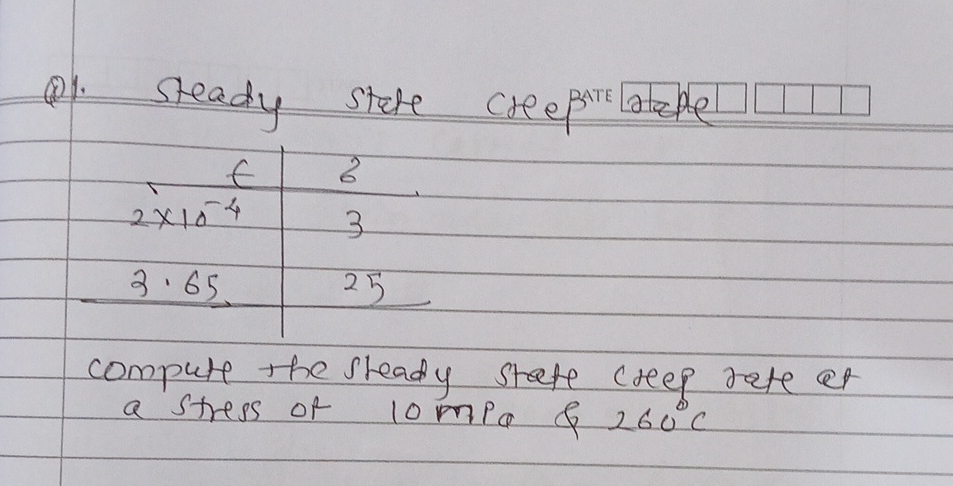 Q1. Steady State Creep DATE
ϵ σ
2×10⁻⁴ 3
3.65 25
compute the steady state creep rate at
a stress of 10 mPa & 260°C